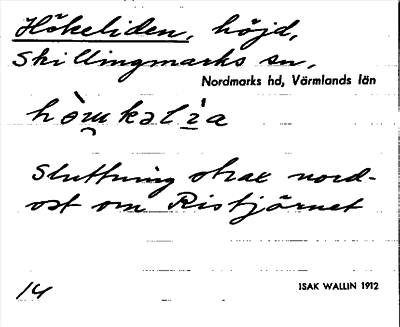 Hökeliden, höjd,
Skillingmarks sn,
Nordmarks hd, Värmlands län
Sluttning strax nord-
ost om Ristjärnet
14
ISAK WALLIN 1912